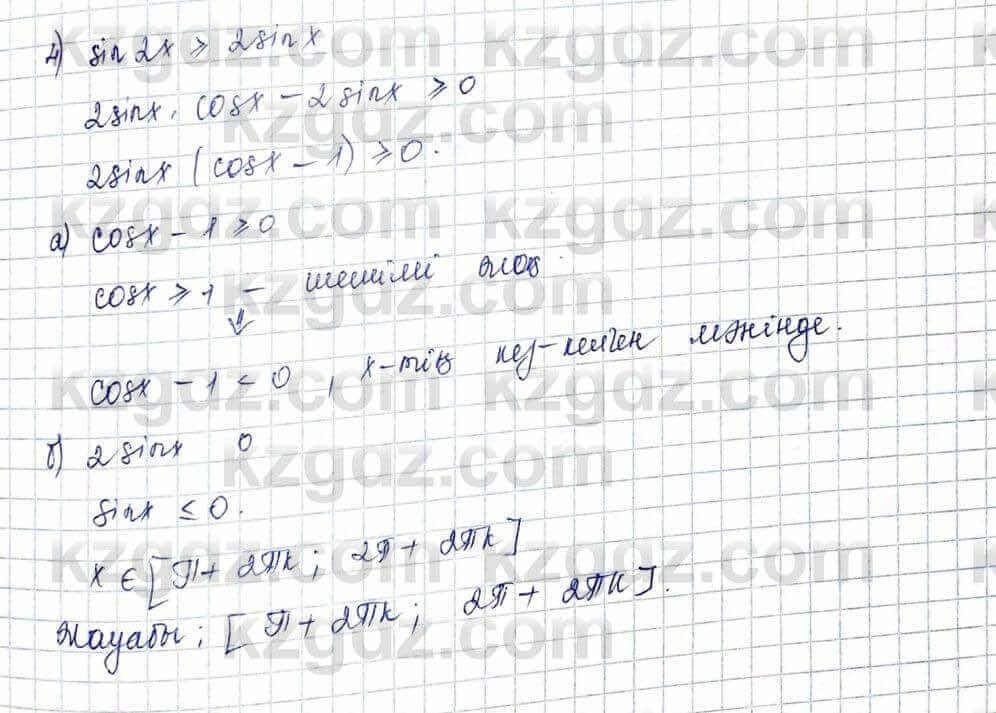 4) sin 2x ≥ 2 sin x
2 sin x · cos x − 2 sin x ≥ 0
2 sin x (cos x − 1) ≥ 0.
а) cos x − 1 ≥ 0
cos x ≥ 1 – шешімі жоқ.
⇓
cos x − 1 < 0, x-тің кез-келген мәнінде.
б) 2 sin x 0
sin x ≤ 0.
x ∈ [π + 2πk; 2π + 2πk]
Жауабы: [π + 2πk; 2π + 2πk].
kzgdz.com